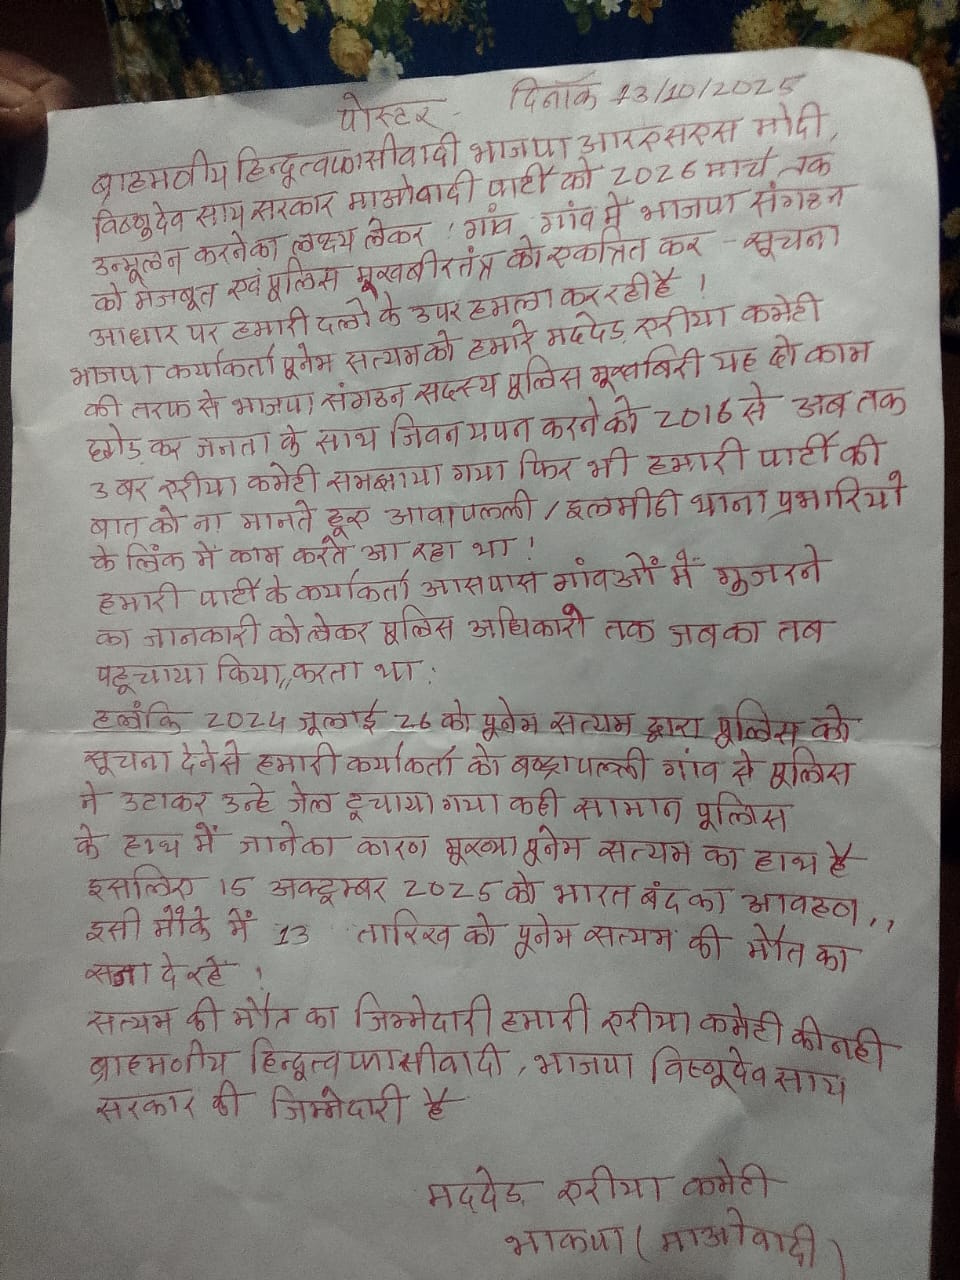 पोस्टर
दिनाँक 13/10/2025
ब्राहमणीय हिन्दूत्वफासीवादी भाजपा आरएसएस मोदी,
विष्णुदेव साय सरकार माओवादी पार्टी को 2026 मार्च तक
उन्मूलन करनेका लक्ष्य लेकर! गांव गांव में भाजपा संगठन
को मजबूत एवं पूलिस मूखबीरतंत्र को एकत्रित कर - सूचना
आधार पर हमारी दलो के उपर हमला कर रही है!
भाजपा कर्याकर्ता पूनेम सत्यम को हमारे मददेड़ एरीया कमेटी
की तरफ से भाजपा संगठन सदस्य पूलिस मूखबिरी यह दो काम
छोड़ कर जनता के साथ जिवन यपन करने को 2016 से अब तक
3 बर एरीया कमेटी समझाया गया फिर भी हमारी पार्टी की
बात को ना मानते हूए आवापल्ली / इलमीडी थाना प्रभारियो
के लिंक में काम करते आ रहा था!
हमारी पार्टी के कर्याकर्ता आसपास गांवओं में गुजरने
का जानकारी को लेकर पूलिस अधिकारी तक जब का तब
पहूचाया किया,, करता था.
हलांकि 2024 जूलाई 26 को पूनेम सत्यम द्वारा पूलिस को
सूचना देने से हमारी कर्याकर्ता को गांव से पूलिस
ने उटाकर उन्हे जेल दूचाया गया कही सामान पूलिस
के हाथ में जाने का कारण मूख्या पूनेम सत्यम का हाथ है
इसलिए 15 अक्टूम्बर 2025 को भारत बंद का आवहन,,
इसी मौके में 13 तारिख को पूनेम सत्यम की मौत का
सजा दे रहे!
सत्यम की मौत का जिम्मेदारी हमारी एरीया कमेटी की नही
ब्राहमणीय हिन्दूत्व फासीवादी, भाजपा विष्णूदेव साय
सरकार की जिम्मेदारी है
मददेड़ एरीया कमेटी
भाकपा (माओवादी)